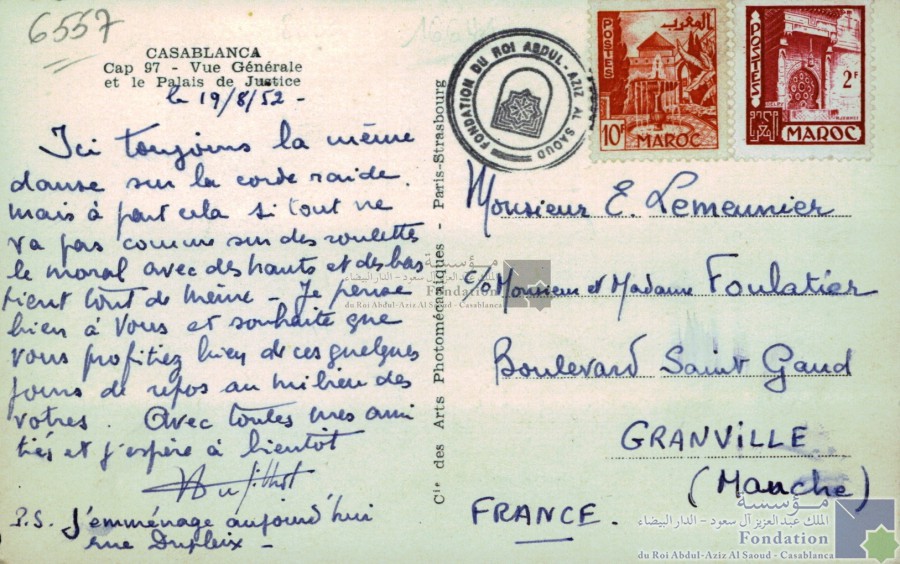 6557
CASABLANCA
Cap 97 - Vue Générale
et le Palais de Justice
le 19/8/52 -
Ici toujours la même
danse sur la corde raide.
mais à part cela si tout ne
va pas comme sur des roulettes
le moral avec des hauts et des bas
tient tout de même - Je pense
bien à Vous et souhaite que
vous profitiez bien de ces quelques
jours de repos au milieu des
votres. Avec toutes mes ami
tiés et j'espère à bientôt
P.S. J'emménage aujourd'hui
rue Dupleix -
Cie des Arts Photomécaniques - Paris-Strasbourg
FONDATION DU ROI ABDUL-AZIZ AL SAOUD
المغرب
POSTES
10F MAROC
POSTES
2F
MAROC
Monsieur E. Lemeunier
c/o Monsieur et Madame Foulatier
Boulevard Saint Gaud
GRANVILLE
(Manche)
FRANCE.
مؤسسة
الملك عبد العزيز آل سعود - الدار البيضاء
Fondation
du Roi Abdul-Aziz Al Saoud - Casablanca
مؤسسة
الملك عبد العزيز آل سعود - الدار البيضاء
Fondation
du Roi Abdul-Aziz Al Saoud - Casablanca